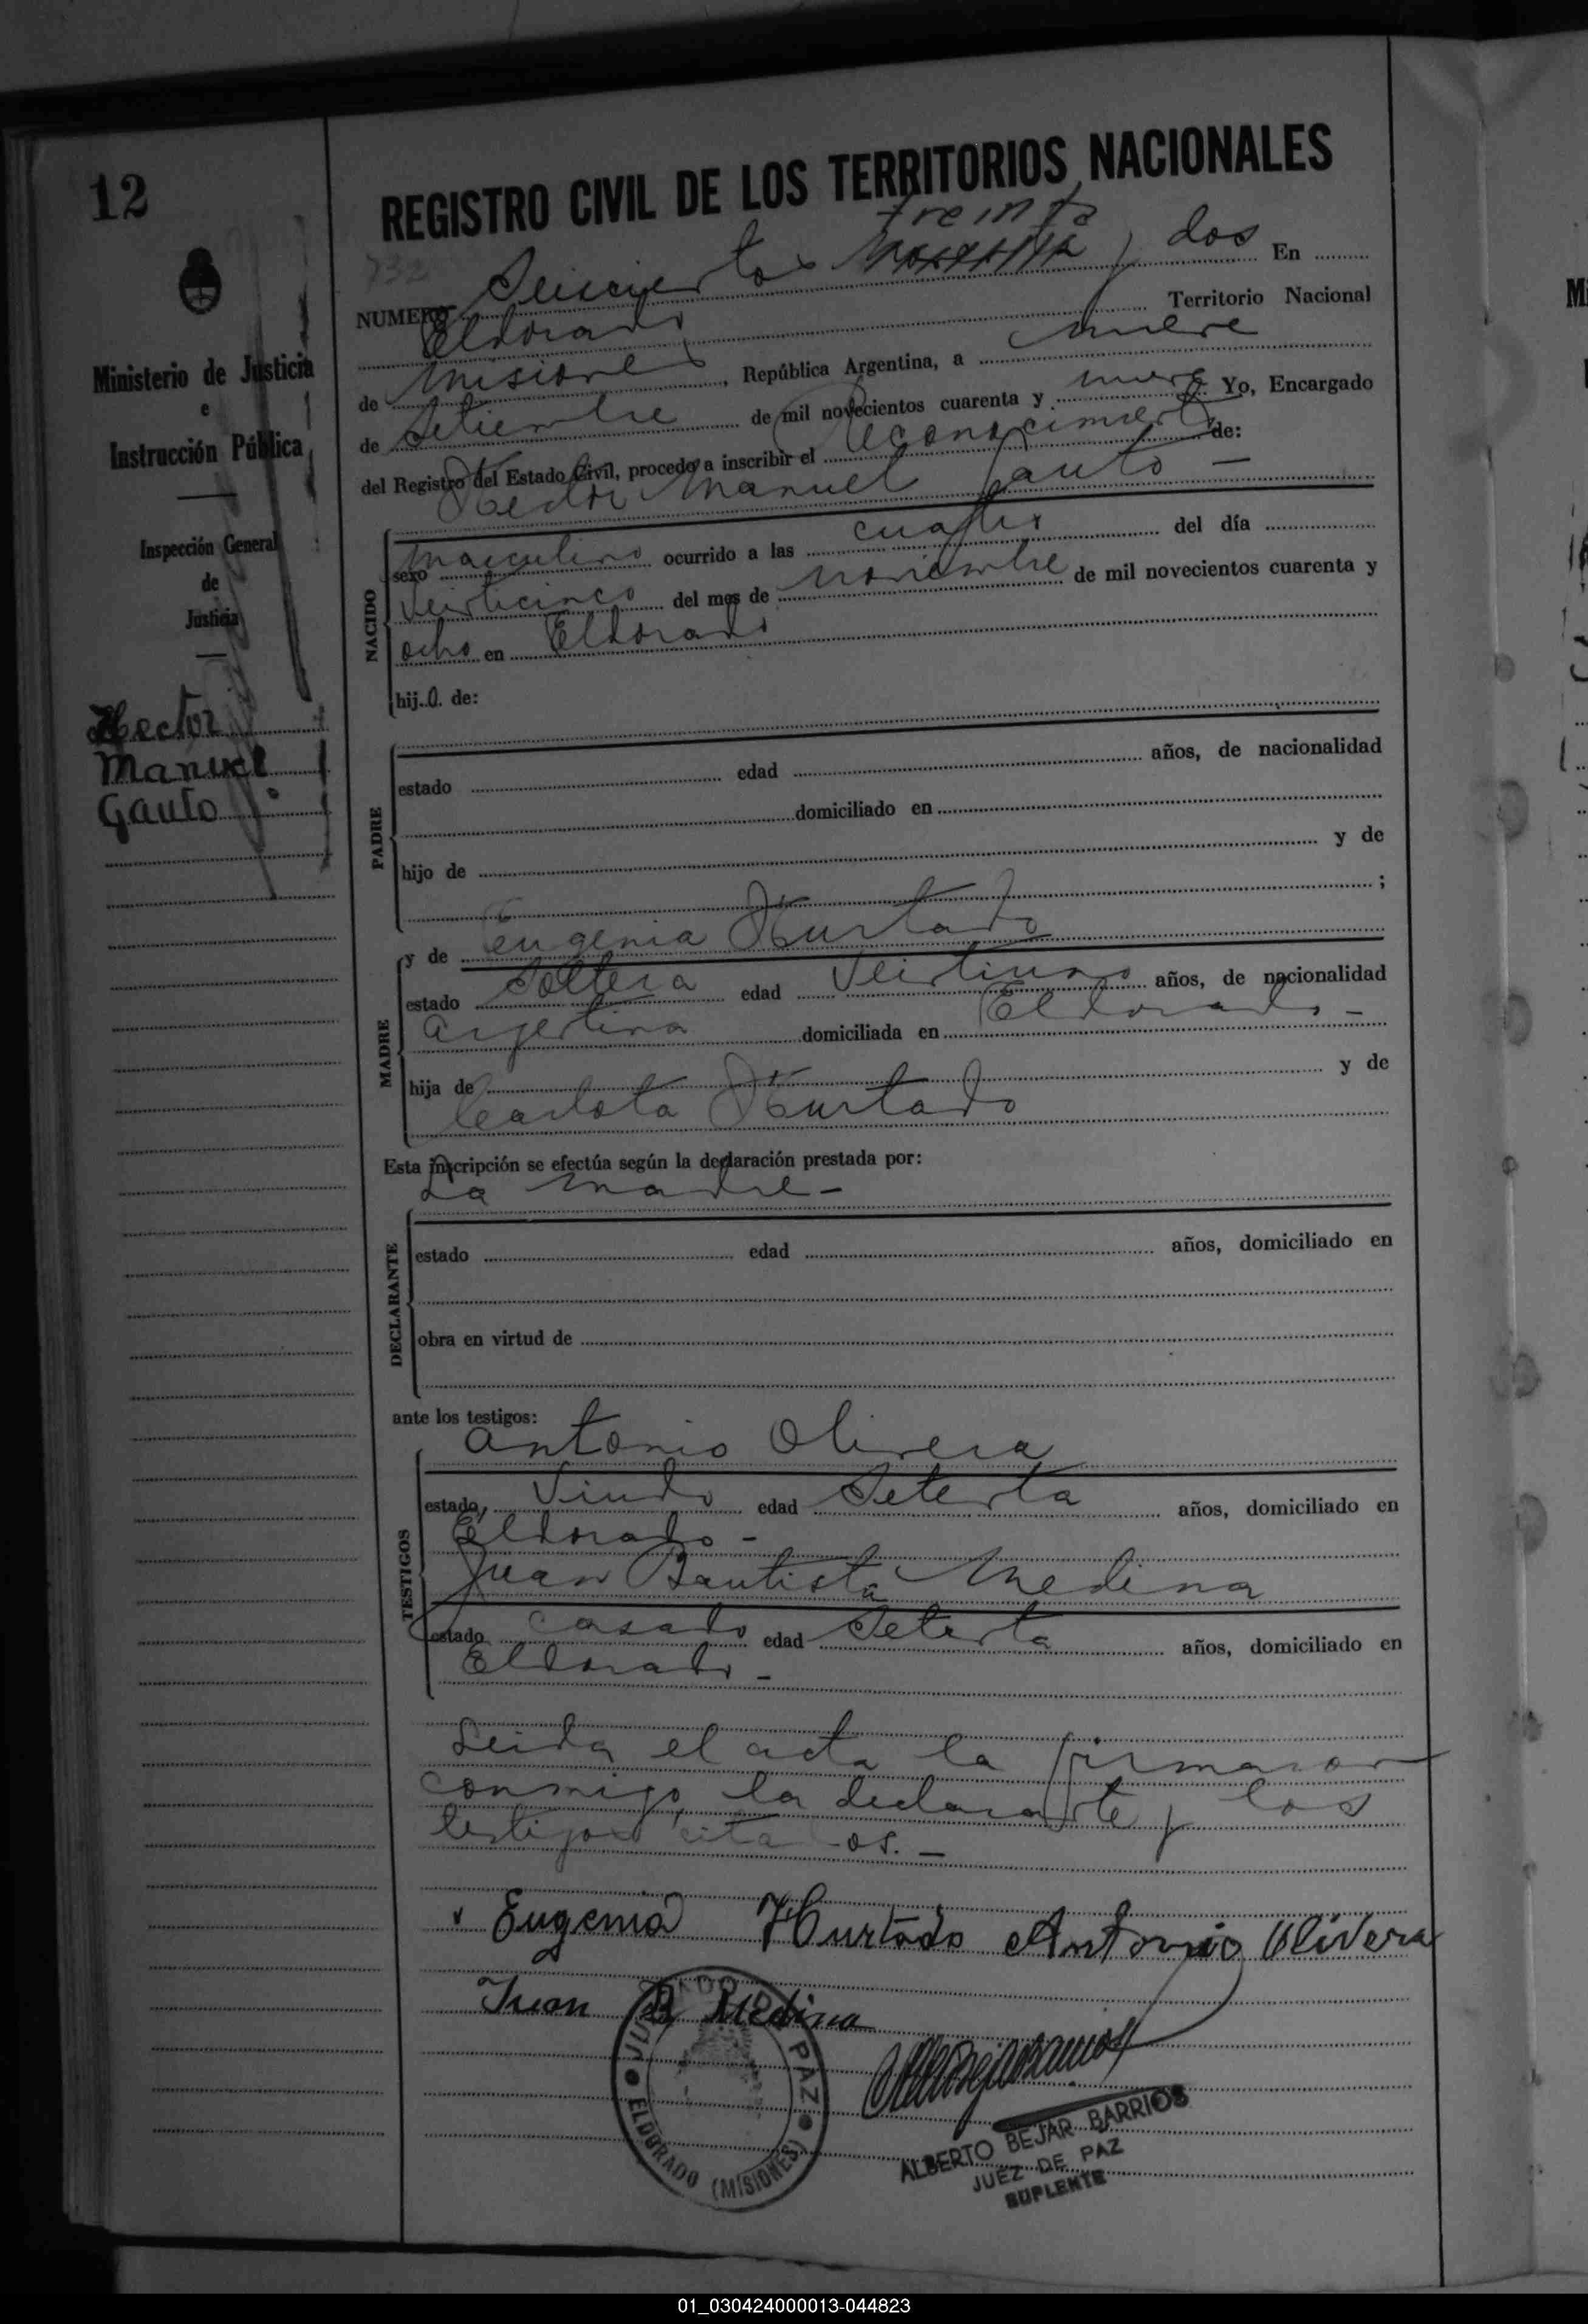 12
REGISTRO CIVIL DE LOS TERRITORIOS NACIONALES
732
treinta
NUMERO Seiscientos y dos En
Eldorado Territorio Nacional
de Misiones, República Argentina, a nueve
de Setiembre de mil novecientos cuarenta y nueve Yo, Encargado
del Registro del Estado Civil, procedo a inscribir el Reconocimiento de:
Hector Manuel Gauto —
Ministerio de Justicia
e
Instrucción Pública
Inspección General
de
Justicia
Hector
Manuel
Gauto
NACIDO
sexo masculino ocurrido a las cuatro del día
veinticinco del mes de noviembre de mil novecientos cuarenta y
ocho en Eldorado
hij.o. de:
PADRE
estado edad años, de nacionalidad
domiciliado en
hijo de y de
;
MADRE
y de Eugenia Hurtado
estado Soltera edad Veintiuno años, de nacionalidad
argentina domiciliada en Eldorado -
hija de y de
Carlota Hurtado
Esta inscripción se efectúa según la declaración prestada por:
La madre -
DECLARANTE
estado edad años, domiciliado en
obra en virtud de
ante los testigos:
TESTIGOS
Antonio Olivera
estado, Viudo edad Setenta años, domiciliado en
Eldorado -
Juan Bautista Medina
estado casado edad Setenta años, domiciliado en
Eldorado -
Leida el acta la firmaron
conmigo, la declarante y los
testigos citados. —
Eugenia Hurtado Antonio Olivera
Juan B Medina
JUZGADO DE PAZ
ELDORADO (MISIONES)
ALBERTO BEJAR BARRIOS
JUEZ DE PAZ
SUPLENTE
01_030424000013-044823